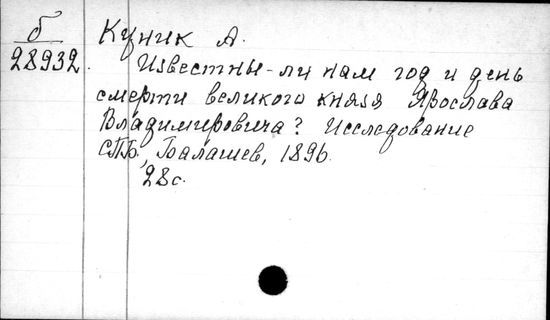 б
28932.
Куник А.
Известны-ли нам год и день
смерти великого князя Ярослава
Владимировича? Исследование
СПБ, Балашев, 1896.
28с.